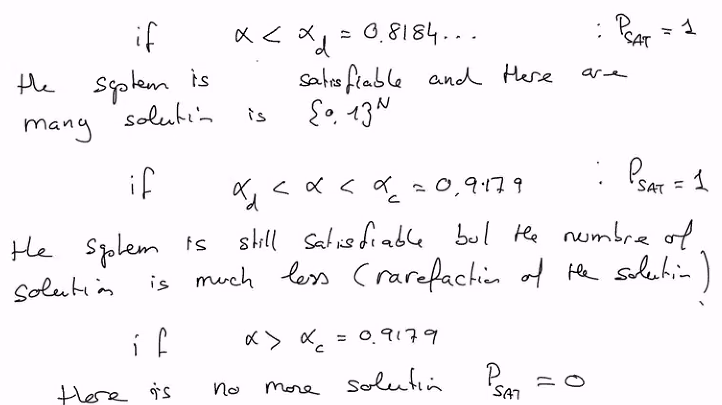 if α < α_d = 0.8184... : P_SAT = 1
the system is satisfiable and there are
many solution is {0,1}^N
if α_d < α < α_c = 0.9179 : P_SAT = 1
the system is still satisfiable but the numbre of
solution is much less (rarefaction of the solution)
if α > α_c = 0.9179
there is no more solution P_SAT = 0